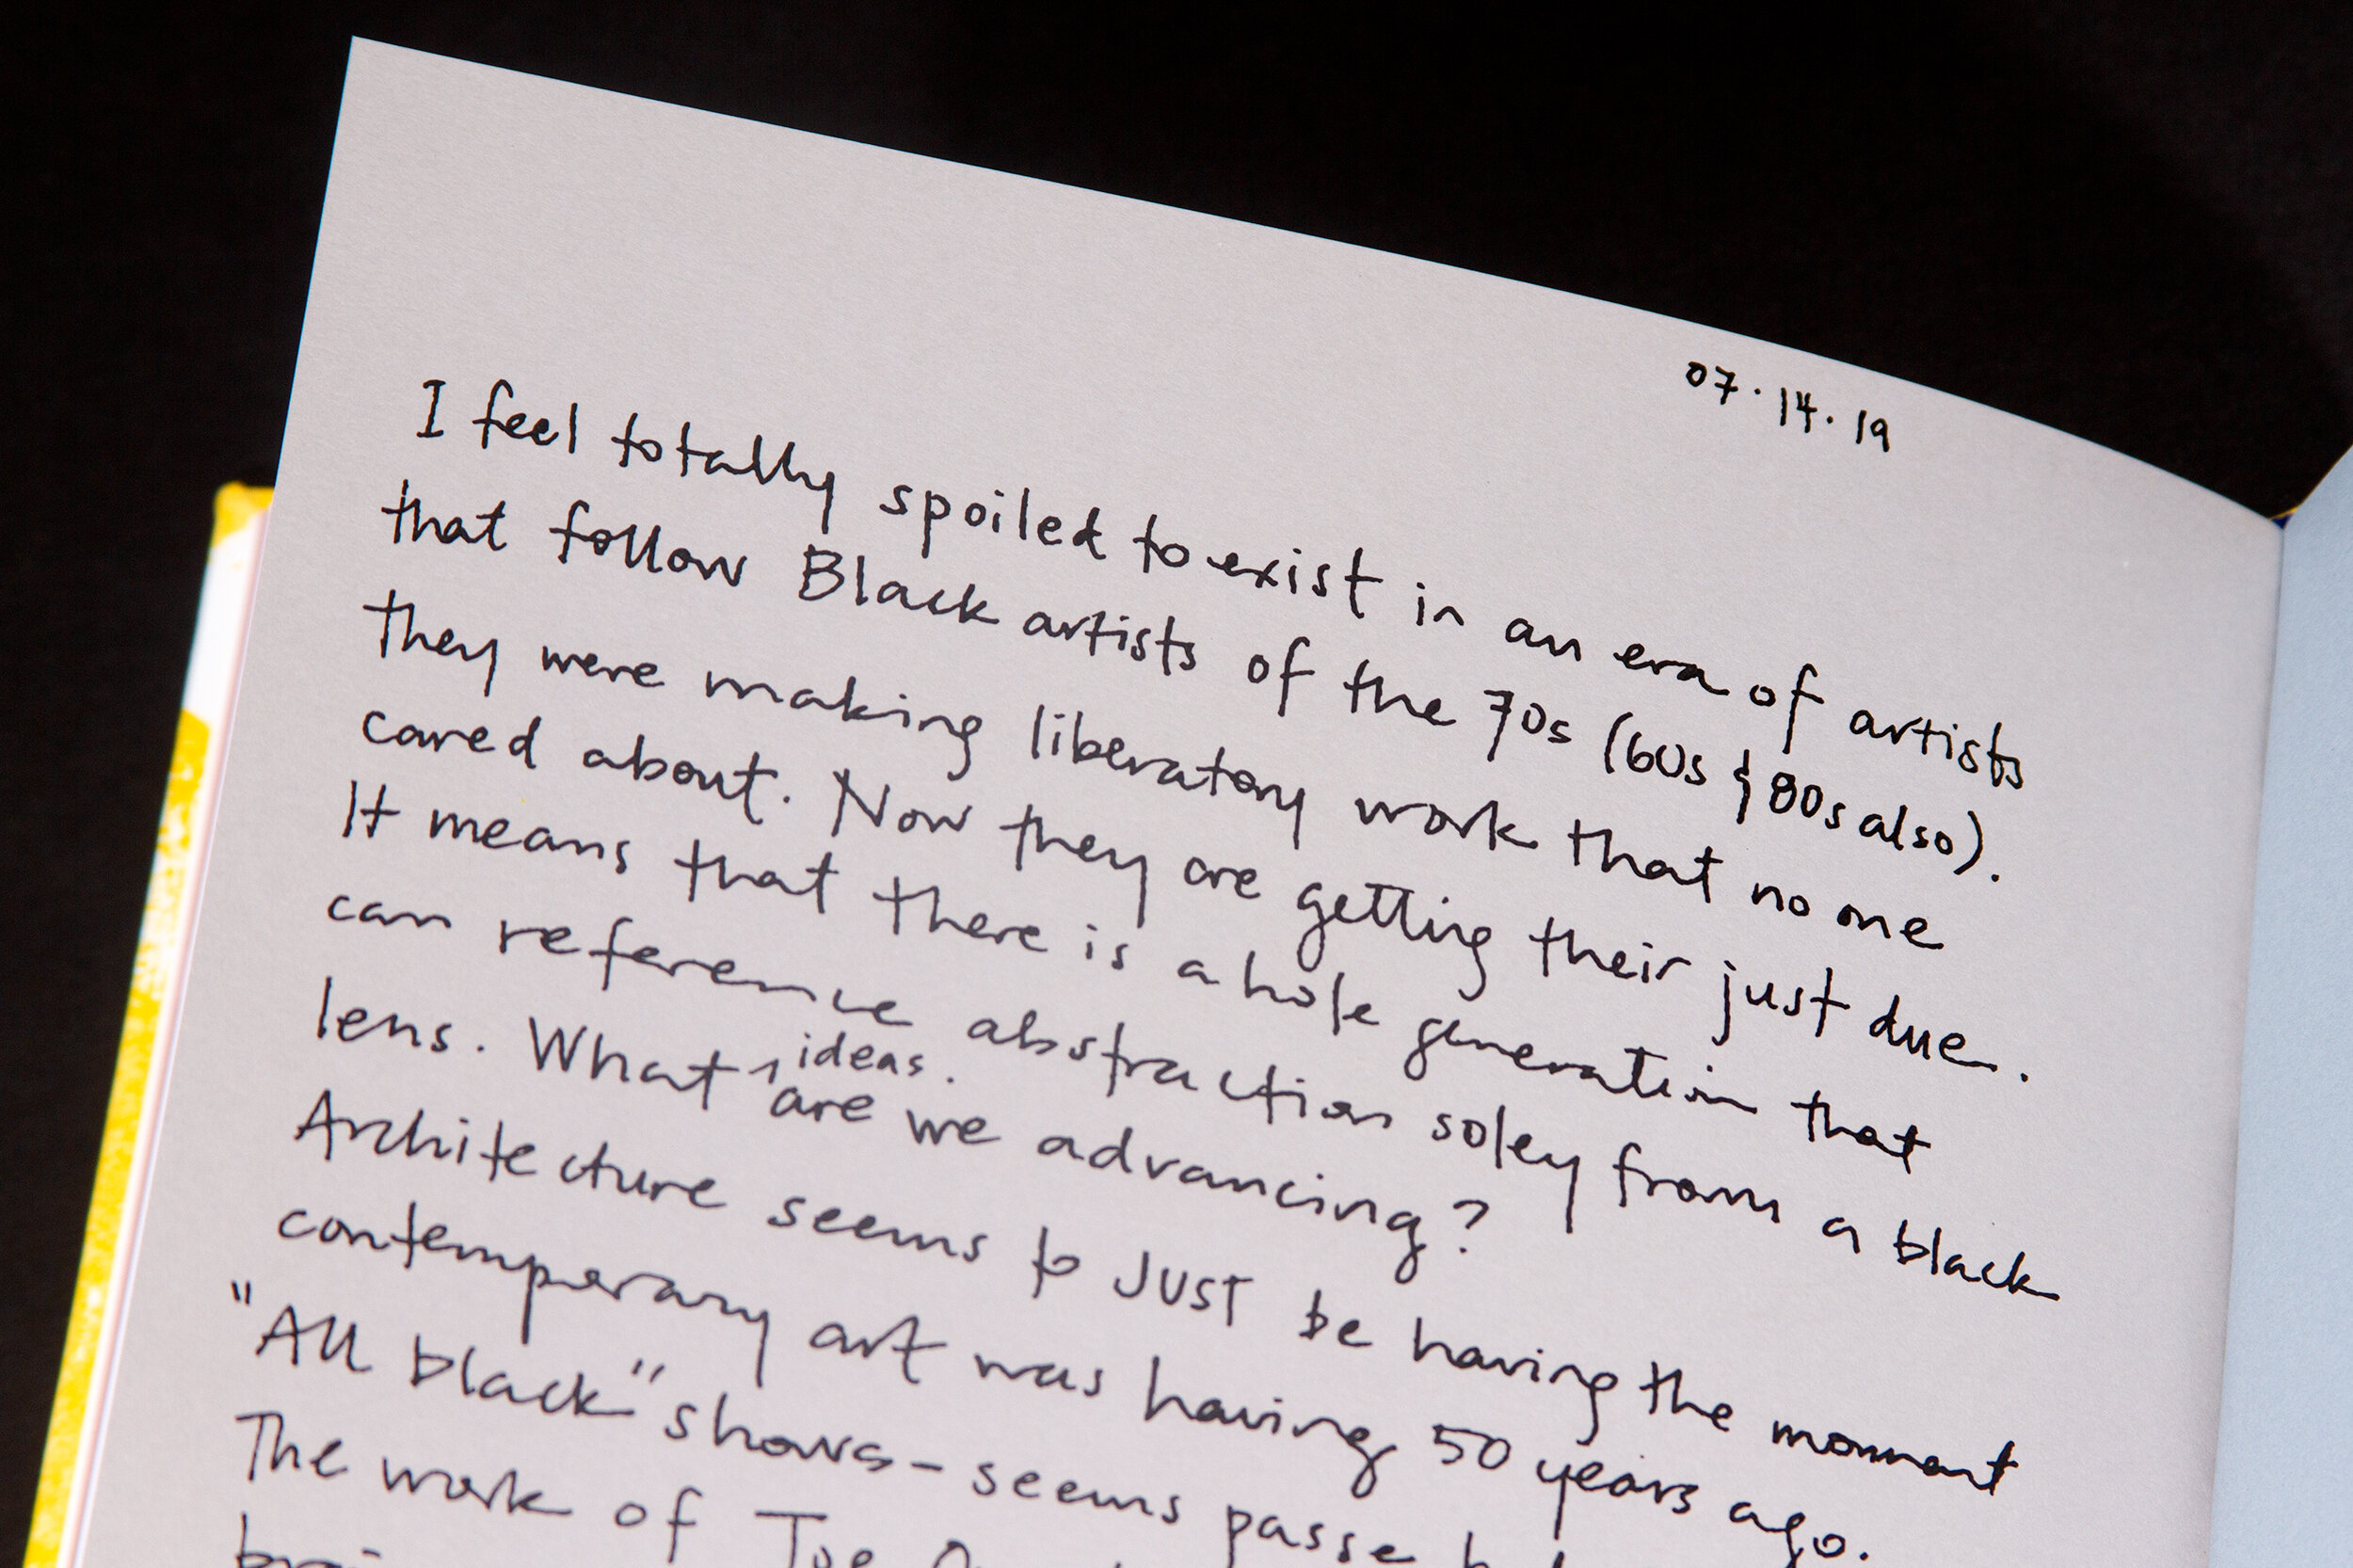 07.14.19
I feel totally spoiled to exist in an era of artists
that follow Black artists of the 70s (60s & 80s also).
They were making liberatory work that no one
cared about. Now they are getting their just due.
It means that there is a hole generation that
can reference abstraction soley from a black
lens. What ideas. are we advancing?
Architecture seems to JUST be having the moment
contemporary art was having 50 years ago.
"All black" shows - seems passe
The work of Joe